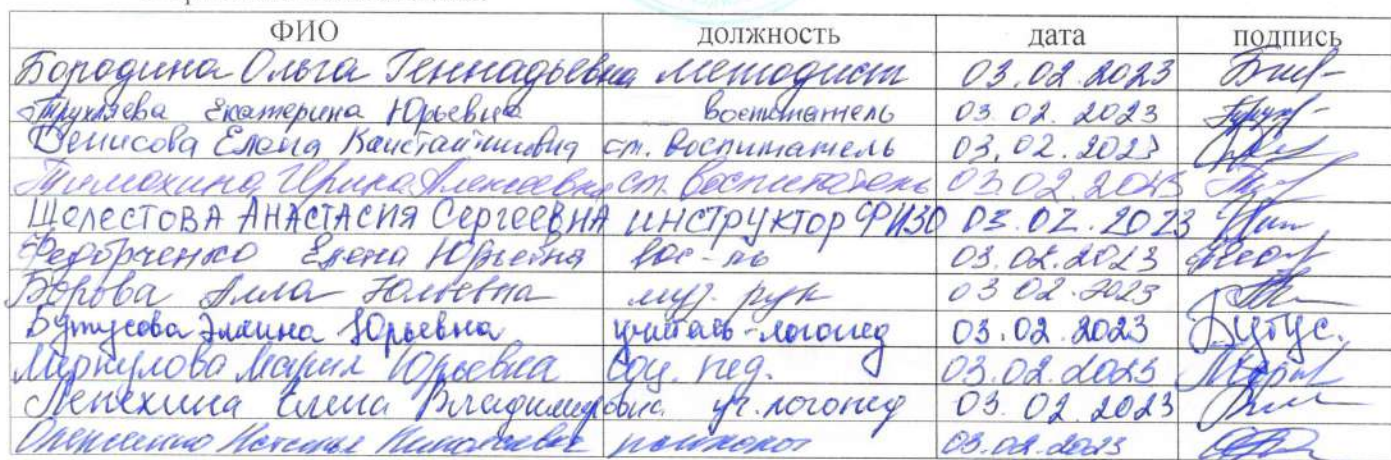 ФИО должность дата подпись
Бородина Ольга Геннадьевна методист 03.02.2023
Екатерина Юрьевна воспитатель 03.02.2023
Денисова Елена Константиновна ст. воспитатель 03.02.2023
Тимохина Ирина Алексеевна ст. воспитатель 03.02.2023
Шелестова Анастасия Сергеевна инструктор ФИЗО 03.02.2023
Федорченко Елена Юрьевна вос-ль 03.02.2023
Алла муз. рук 03.02.2023
Бутусова Юрьевна учитель-логопед 03.02.2023 Бутус.
Меркулова Мария Юрьевна соц. пед. 03.02.2023
Лепехина Елена Владимировна уч. логопед 03.02.2023
психолог 03.02.2023